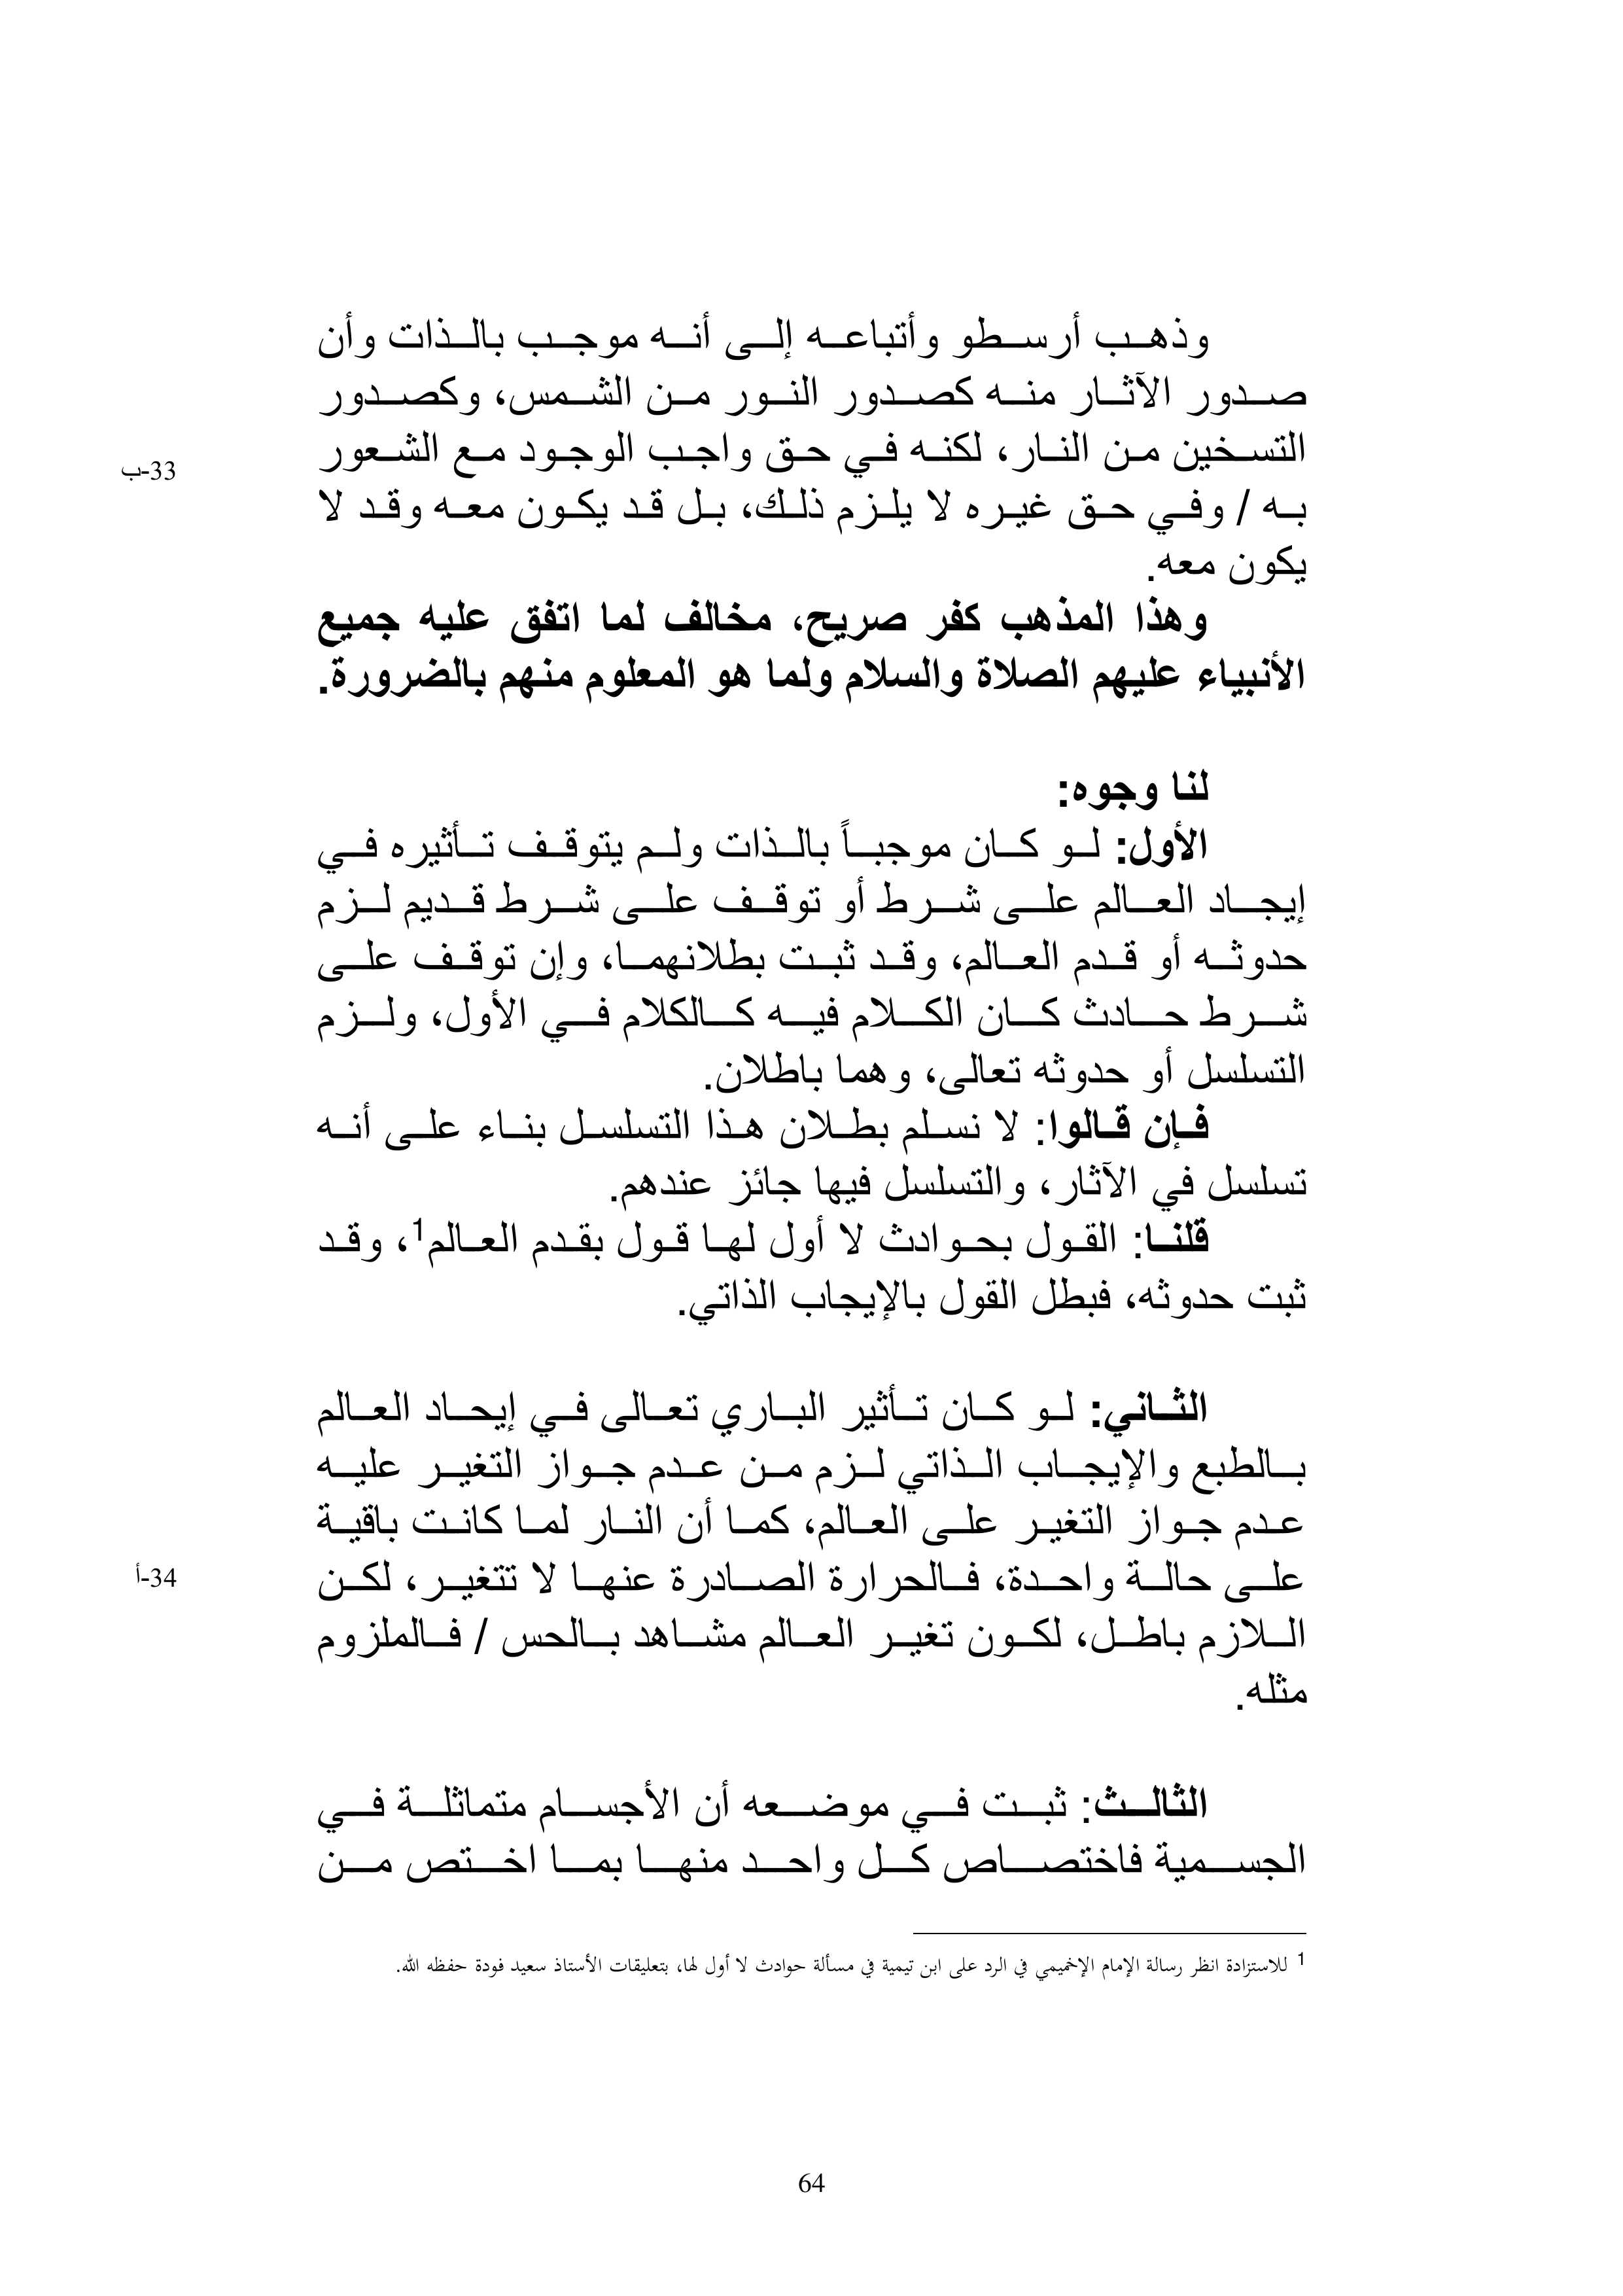 وذهب أرسطو وأتباعه إلى أنه موجب بالذات وأن
صدور الآثار منه كصدور النور من الشمس، وكصدور
التسخين من النار، لكنه في حق واجب الوجود مع الشعور
33-ب
به / وفي حق غيره لا يلزم ذلك، بل قد يكون معه وقد لا
يكون معه.
وهذا المذهب كفر صريح، مخالف لما اتفق عليه جميع
الأنبياء عليهم الصلاة والسلام ولما هو المعلوم منهم بالضرورة.
لنا وجوه:
الأول: لو كان موجباً بالذات ولم يتوقف تأثيره في
إيجاد العالم على شرط أو توقف على شرط قديم لزم
حدوثه أو قدم العالم، وقد ثبت بطلانهما، وإن توقف على
شرط حادث كان الكلام فيه كالكلام في الأول، ولزم
التسلسل أو حدوثه تعالى، وهما باطلان.
فإن قالوا: لا نسلم بطلان هذا التسلسل بناء على أنه
تسلسل في الآثار، والتسلسل فيها جائز عندهم.
قلنا: القول بحوادث لا أول لها قول بقدم العالم1، وقد
ثبت حدوثه، فبطل القول بالإيجاب الذاتي.
الثاني: لو كان تأثير الباري تعالى في إيحاد العالم
بالطبع والإيجاب الذاتي لزم من عدم جواز التغير عليه
عدم جواز التغير على العالم، كما أن النار لما كانت باقية
على حالة واحدة، فالحرارة الصادرة عنها لا تتغير، لكن
34-أ
اللازم باطل، لكون تغير العالم مشاهد بالحس / فالملزوم
مثله.
الثالث: ثبت في موضعه أن الأجسام متماثلة في
الجسمية فاختصاص كل واحد منها بما اختص من
1 للاستزادة انظر رسالة الإمام الإخميمي في الرد على ابن تيمية في مسألة حوادث لا أول لها، بتعليقات الأستاذ سعيد فودة حفظه الله.
64